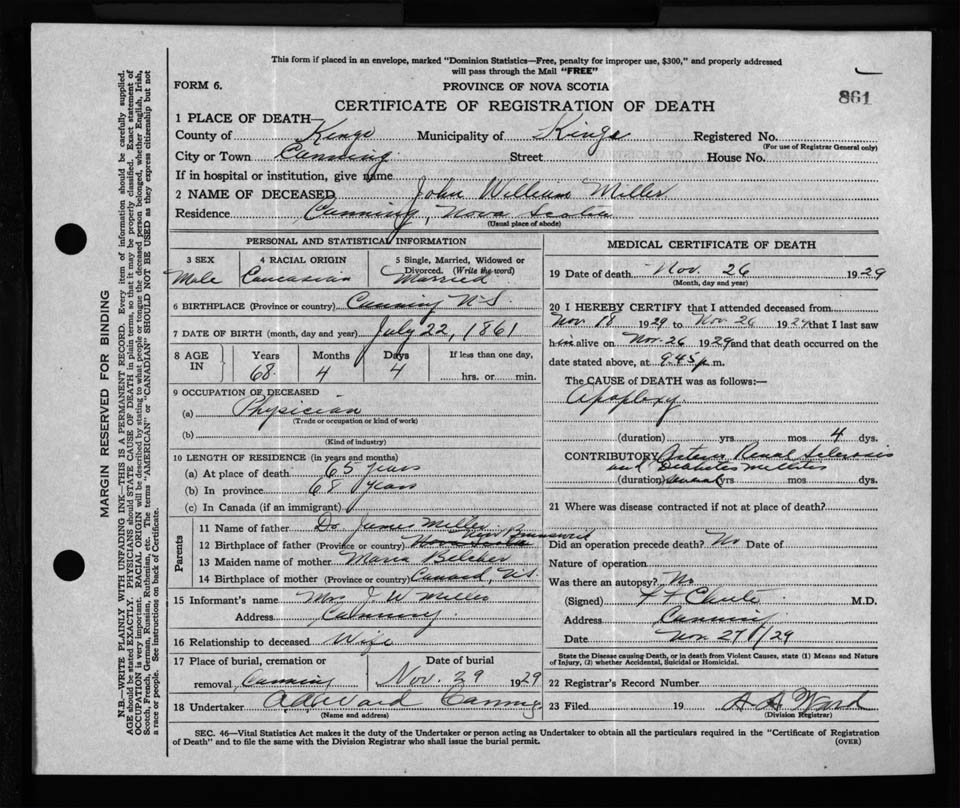 This form if placed in an envelope, marked "Dominion Statistics—Free, penalty for improper use, $300," and properly addressed
will pass through the Mail "FREE"
FORM 6.
PROVINCE OF NOVA SCOTIA
861
CERTIFICATE OF REGISTRATION OF DEATH
1 PLACE OF DEATH—
County of Kings Municipality of Kings Registered No.
(For use of Registrar General only)
City or Town Canning Street House No.
If in hospital or institution, give name
2 NAME OF DECEASED John William Miller
Residence Canning, Nova Scotia
(Usual place of abode)
PERSONAL AND STATISTICAL INFORMATION
3 SEX 4 RACIAL ORIGIN 5 Single, Married, Widowed or Divorced. (Write the word)
Male Caucasian Married
6 BIRTHPLACE (Province or country) Canning N.S.
7 DATE OF BIRTH (month, day and year) July 22, 1861
8 AGE IN Years Months Days If less than one day,
68 4 4 hrs. or min.
9 OCCUPATION OF DECEASED
(a) Physician
(Trade or occupation or kind of work)
(b)
(Kind of industry)
10 LENGTH OF RESIDENCE (in years and months)
(a) At place of death 65 years
(b) In province 68 years
(c) In Canada (if an immigrant)
Parents
11 Name of father Dr James Miller
New Brunswick
12 Birthplace of father (Province or country) Nova Scotia
13 Maiden name of mother Maria Belcher
14 Birthplace of mother (Province or country) Canard, N.S.
15 Informant's name Mrs J. W Miller
Address Canning
16 Relationship to deceased Wife
17 Place of burial, cremation or Date of burial
removal Canning Nov. 29 1929
18 Undertaker A A Ward Canning
(Name and address)
MEDICAL CERTIFICATE OF DEATH
19 Date of death Nov. 26 1929
(Month, day and year)
20 I HEREBY CERTIFY that I attended deceased from
Nov 18 1929 to Nov 26 1929 that I last saw
him alive on Nov. 26 1929 and that death occurred on the
date stated above, at 9.45 p.m.
The CAUSE of DEATH was as follows:—
Apoplexy
(duration) yrs. mos. 4 dys.
CONTRIBUTORY Arterio Renal Sclerosis
and Diabetes mellitus
(duration) several yrs. mos. dys.
21 Where was disease contracted if not at place of death?
Did an operation precede death? No Date of
Nature of operation
Was there an autopsy? No
(Signed) F F Chute M.D.
Address Canning
Date Nov. 27/29
State the Disease causing Death, or in death from Violent Causes, state (1) Means and Nature
of Injury, (2) whether Accidental, Suicidal or Homicidal.
22 Registrar's Record Number
23 Filed 19 A A Ward
(Division Registrar)
SEC. 46—Vital Statistics Act makes it the duty of the Undertaker or person acting as Undertaker to obtain all the particulars required in the "Certificate of Registration
of Death" and to file the same with the Division Registrar who shall issue the burial permit.
(OVER)
MARGIN RESERVED FOR BINDING
N.B.—WRITE PLAINLY WITH UNFADING INK—THIS IS A PERMANENT RECORD. Every item of information should be carefully supplied.
AGE should be stated EXACTLY. PHYSICIANS should STATE CAUSE OF DEATH in plain terms, so that it may be properly classified. Exact statement of
OCCUPATION is very important. RACIAL ORIGIN will be described by stating to what people or tongue the deceased person belonged, whether English, Irish,
Scotch, French, German, Russian, Ruthenian, etc. The terms "AMERICAN" or "CANADIAN" SHOULD NOT BE USED as they express citizenship but not
a race or people. See instructions on back of Certificate.